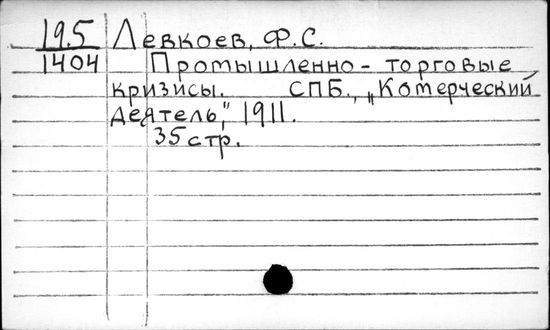 19.5 Левкоев, Ф.С.
1404 Промышленно - торговые
кризисы. СПБ., „Комерческий
деятель", 1911.
35 стр.